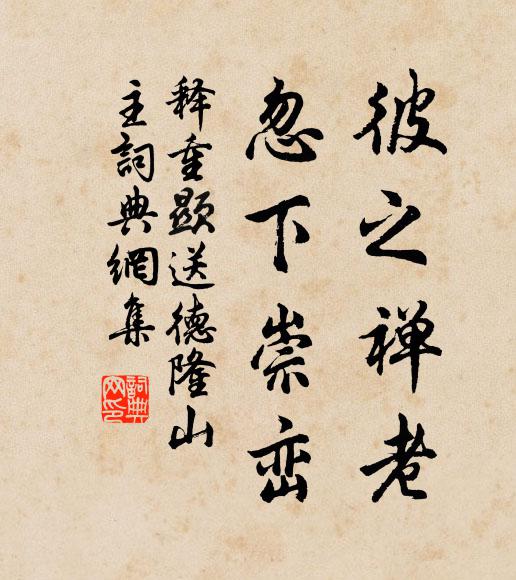 彼之禅老
忽下崇峦
释重显送德隆山
主詞典網集
詞典
网印